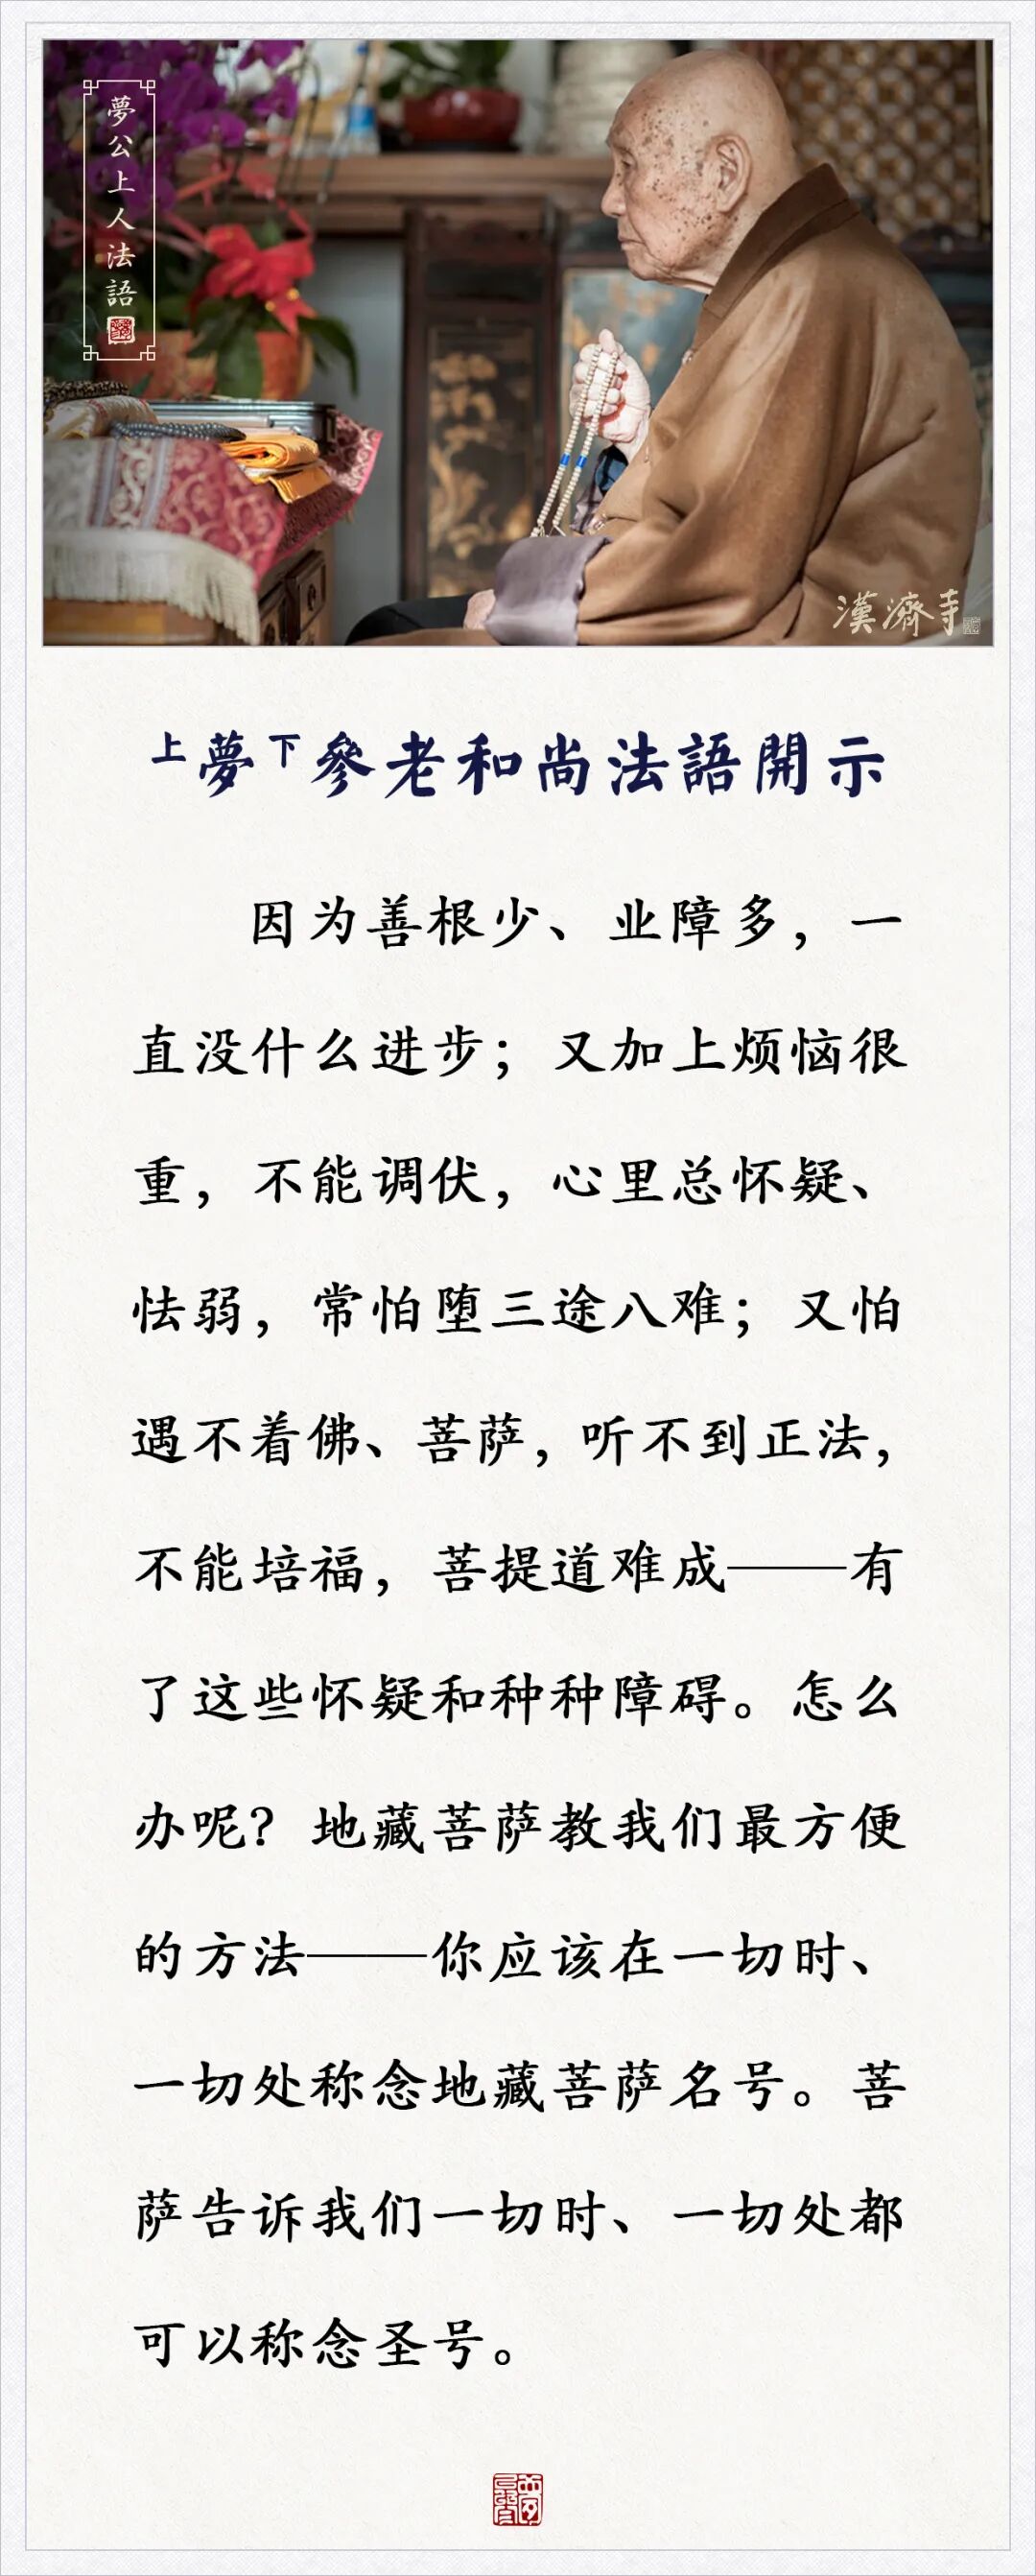 夢公上人法語
漢濟寺
上夢下參老和尚法語開示
因为善根少、业障多，一
直没什么进步；又加上烦恼很
重，不能调伏，心里总怀疑、
怯弱，常怕堕三途八难；又怕
遇不着佛、菩萨，听不到正法，
不能培福，菩提道难成——有
了这些怀疑和种种障碍。怎么
办呢？地藏菩萨教我们最方便
的方法——你应该在一切时、
一切处称念地藏菩萨名号。菩
萨告诉我们一切时、一切处都
可以称念圣号。